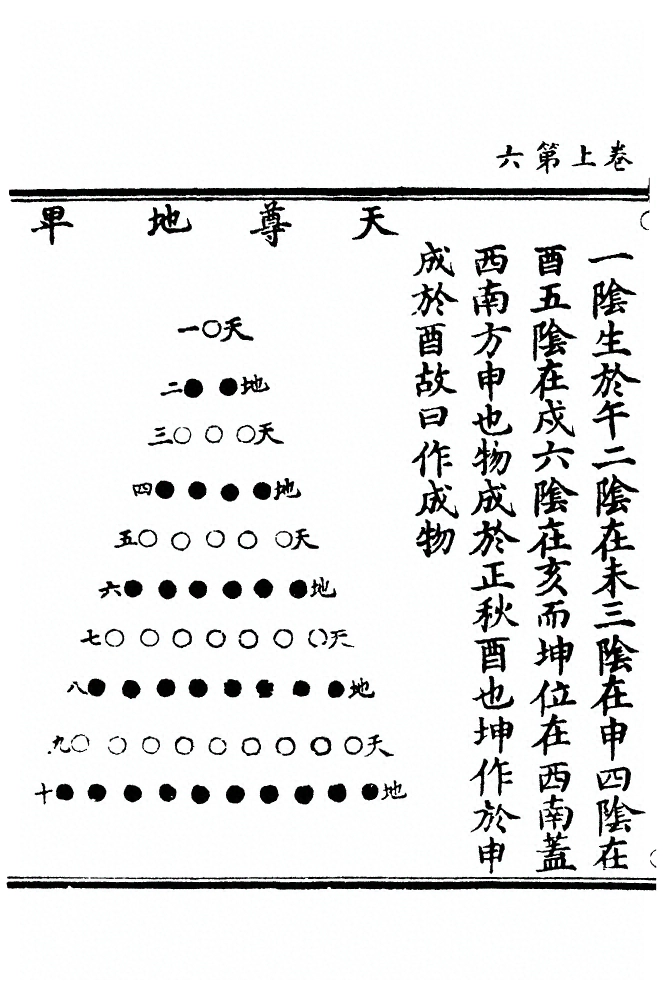 卷上第六
一陰生於午二陰在未三陰在申四陰在
酉五陰在戌六陰在亥而坤位在西南蓋
西南方申也物成於正秋酉也坤作於申
成於酉故曰作成物
天尊地卑
天一
地二
天三
地四
天五
地六
天七
地八
天九
地十